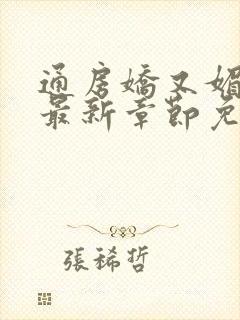 通房嬌又媚
最新章節免
張稀哲